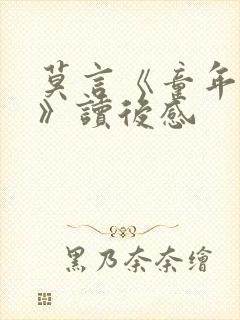 莫言《童年
》讀後感
黑乃奈奈繪